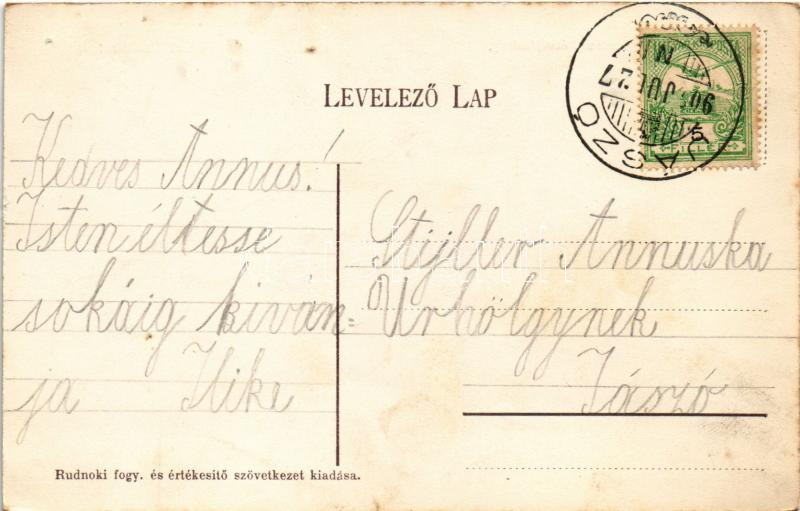 LEVELEZŐ LAP
JÁSZÓ
906 JUL 27
5
FILLÉR
Kedves Annus!
Isten éltesse
sokáig kiván=
ja Ilike
Stijller Annuska
Urhölgynek
Jászó
Rudnoki fogy. és értékesitő szövetkezet kiadása.